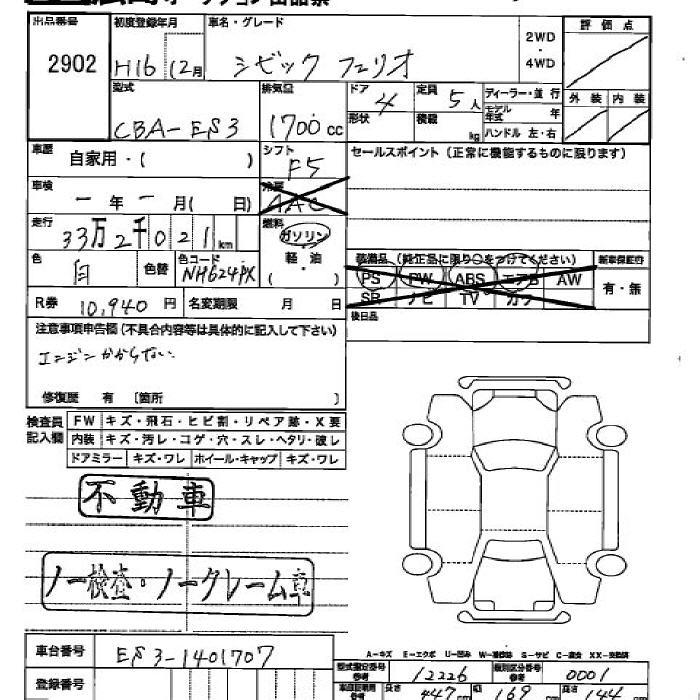 出品番号 初度登録年月 車名・グレード 2WD・4WD 評価点
2902 H16 12月 シビック フェリオ
型式 排気量 ドア 定員 ディーラー・並行 外装 内装
CBA-ES3 1700cc 4 5人 モデル年式 年
形状 積載 kg ハンドル 左・右
車歴 自家用・( ) シフト F5 セールスポイント(正常に機能するものに限ります)
車検 一年一月( 日) 冷房 AAC
走行 33万2千021km 燃料 ガソリン・軽油( )
装備品(純正品に限り○をつけてください) 新車保証印
色 白 色替 色コード NH624PX
PS PW ABS エアB AW 有・無
SR ナビ TV カワ
R券 10,940円 名変期限 月 日
後日品
注意事項申告欄(不具合内容等は具体的に記入して下さい)
エンジンかからない
修復歴 有 〔箇所 〕
検査員記入欄 FW キズ・飛石・ヒビ割・リペア跡・X要
内装 キズ・汚レ・コゲ・穴・スレ・ヘタリ・破レ
ドアミラー キズ・ワレ ホイール・キャップ キズ・ワレ
不動車
ノー検査・ノークレーム車
A-キズ E-エクボ U-凹み W-補修跡 S-サビ C-腐食 XX-交換済
車台番号 ES3-1401707
型式指定番号参考 12226 類別区分番号参考 0001
登録番号 長さ 447cm 幅 169cm 高さ 144cm